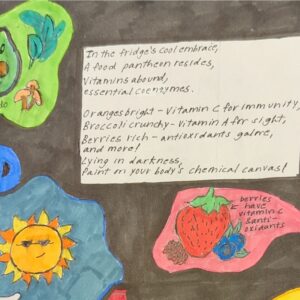 In the fridge's cool embrace,
A food pantheon resides,
Vitamins abound,
essential coenzymes.
Oranges bright - Vitamin C for immunity,
Broccoli crunchy - vitamin A for sight,
Berries rich - antioxidants galore,
and more!
Lying in darkness,
Paint on your body's chemical canvas!
berries
have
vitamin C
&anti-
oxidants